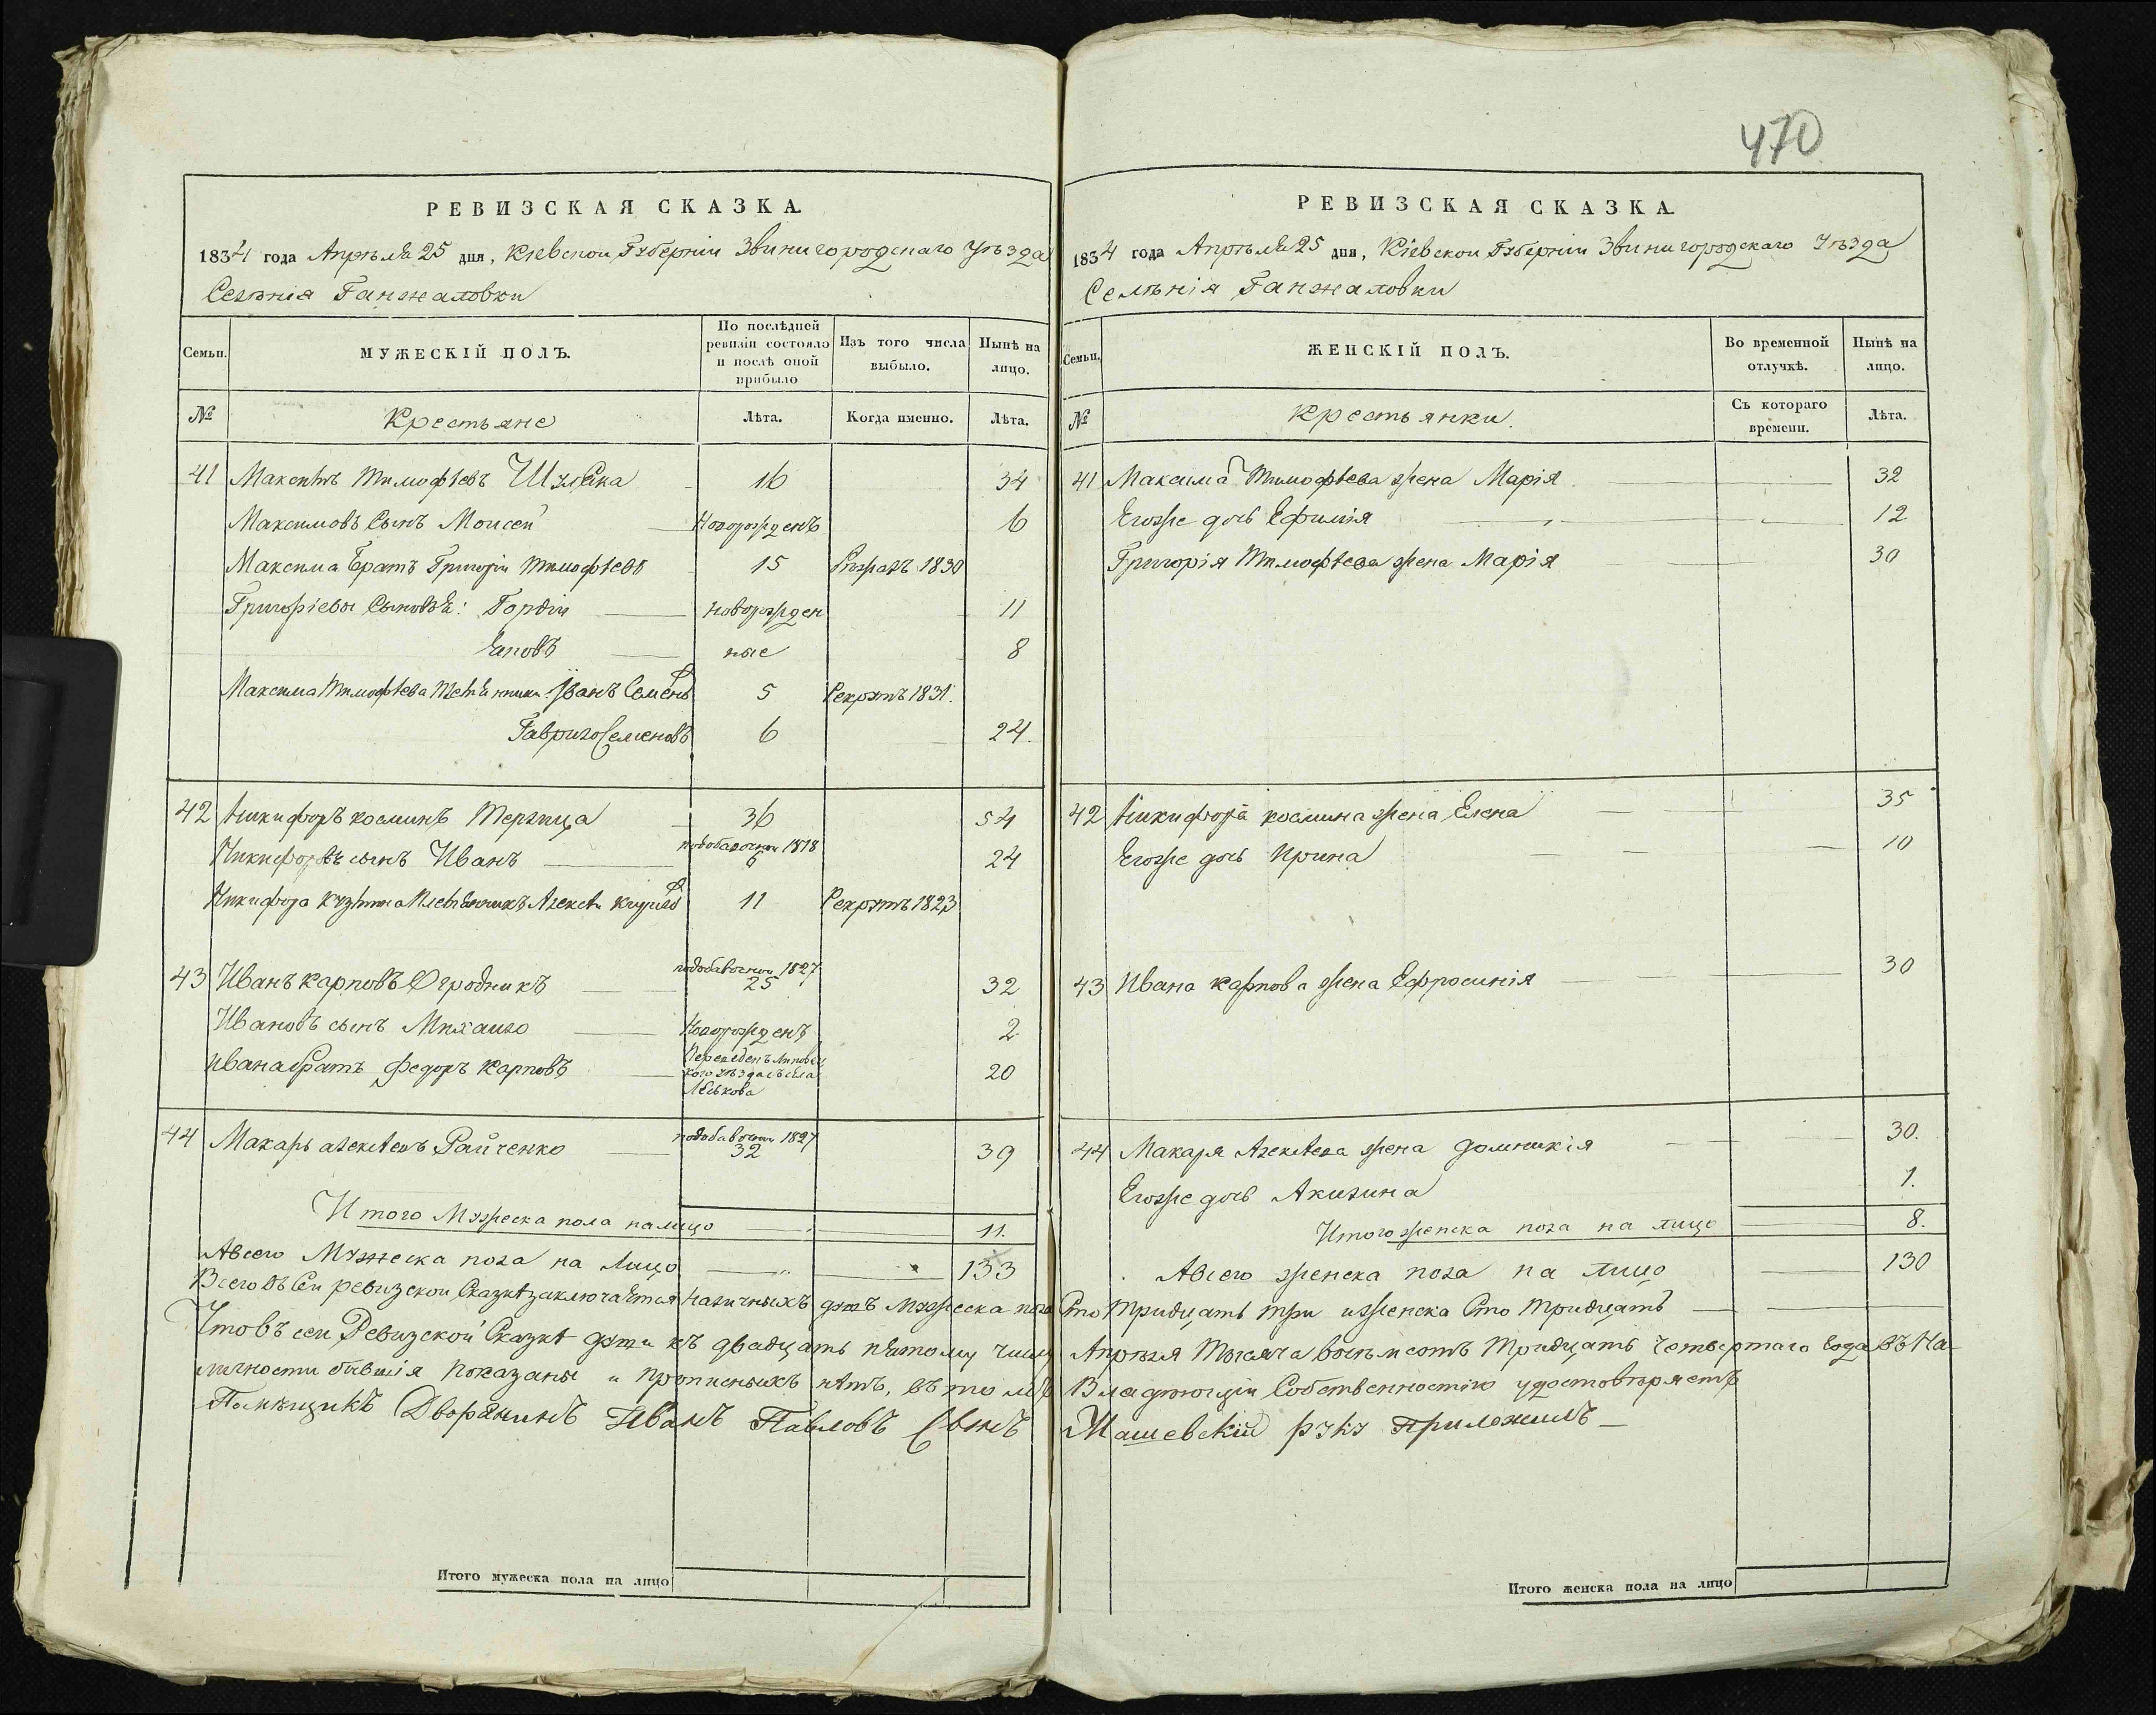 470
РЕВИЗСКАЯ СКАЗКА.
1834 года Апрѣля 25 дня, Кіевской Губерніи Звинигородскаго Уѣзда
Селѣнія Ганжаловки
Семьи.
МУЖЕСКІЙ ПОЛЪ.
По послѣдней ревизіи состояло и послѣ оной прибыло
Изъ того числа выбыло.
Нынѣ на лицо.
№
Крестьяне
Лѣта.
Когда именно.
Лѣта.
41 Максимъ Тимофѣевъ 16 34
Максимовъ Сынъ Моисей Новорожденъ 6
Максима Братъ Григорій Тимофѣевъ 15 1830
Григорiевы Сыновья: Гордій новорожден 11
ные 8
Максима Тимофѣева Иванъ Семеновъ 5 Рекрутъ 1831.
Гаврило Семеновъ 6 24.
42 Никифоръ косминъ 36 54
Никифоровъ сынъ Иванъ 1818 6 24
Никифора Алексѣй 11 Рекрутъ 1823
43 Иванъ карповъ Огродникъ подобавочной 1827 25 32
Ивановъ сынъ Михаило Новорожденъ 2
Ивана братъ Федоръ Карповъ Переведенъ 20
44 Макаръ алексѣевъ Райченко подобавочной 1827 32 39
Итого Мужеска пола налицо 11.
Авсего Мужеска пола на Лицо 133
РЕВИЗСКАЯ СКАЗКА.
1834 года Апрѣля 25 дня, Кіевской Губерніи Звинигородскаго Уѣзда
Селѣнія Ганжаловки
Семьи.
ЖЕНСКІЙ ПОЛЪ.
Во временной отлучкѣ.
Нынѣ на лицо.
№
Крестьянки.
Съ котораго времени.
Лѣта.
41 Максима Тимофѣева жена Марія 32
Егоже дочь Ефимія 12
Григорія Тимофѣева жена Марія 30
42 Никифора космина жена Елена 35
Егоже дочь Ирина 10
43 Ивана карпова жена Ефросинія 30
44 Макаря Алексѣева жена Домникія 30.
Егоже дочь Акилина 1.
Итого женска пола на лицо 8.
Авсего женска пола на лицо 130
Всего въ Сей ревизской Сказкѣ заключается наличныхъ душъ мужеска пола Сто Тридцать три и женска Сто Тридцать
Что въ сей Ревизской Сказкѣ души къ двадцать пятому числу Апрѣля Тысяча восѣмсотъ Тридцать Четвертаго Года въ На-
личности бывшія показаны и прописныхъ нѣтъ, въ томъ Владѣющій Собственностію удостовѣряетъ
Помѣщикъ Дворянинъ Иванъ Павловъ Сынъ Машевскій руку Приложилъ
Итого мужеска пола на лицо
Итого женска пола на лицо